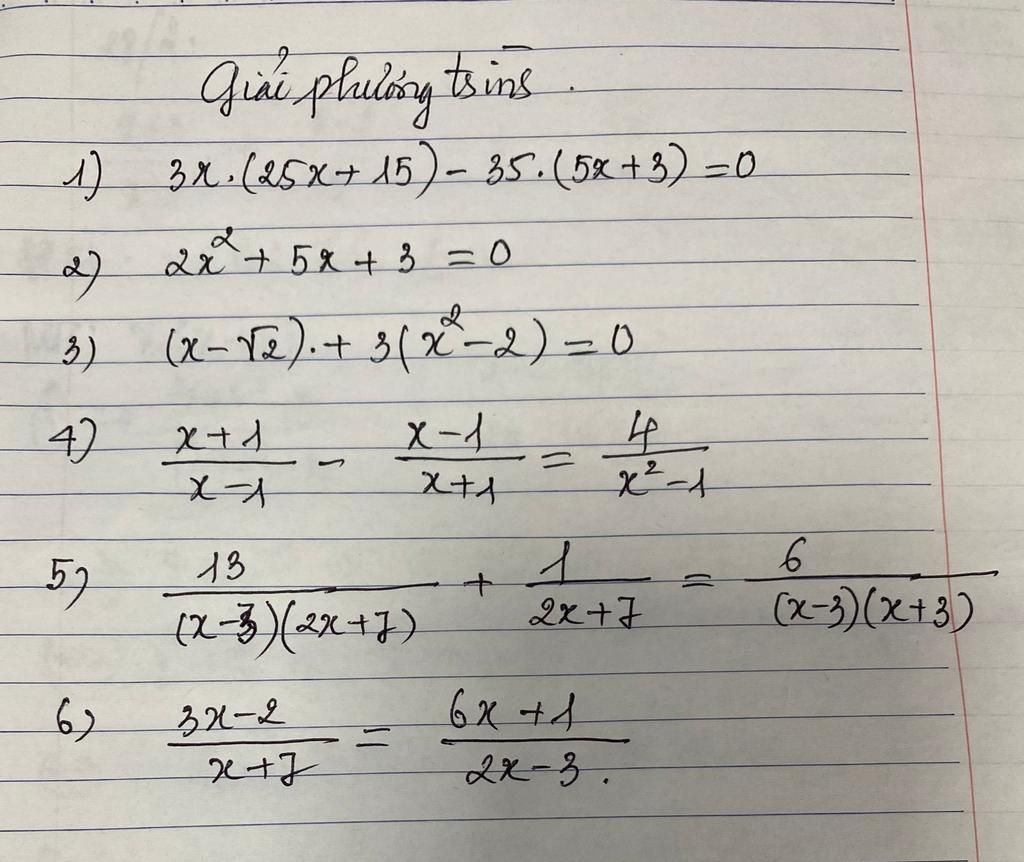 Giải phương trình.
1) 3x.(25x+15)-35.(5x+3)=0
2) 2x²+5x+3=0
3) (x-√2).+3(x²-2)=0
4) \frac{x+1}{x-1} - \frac{x-1}{x+1} = \frac{4}{x²-1}
5) \frac{13}{(x-3)(2x+7)} + \frac{1}{2x+7} = \frac{6}{(x-3)(x+3)}
6) \frac{3x-2}{x+7} = \frac{6x+1}{2x-3}.